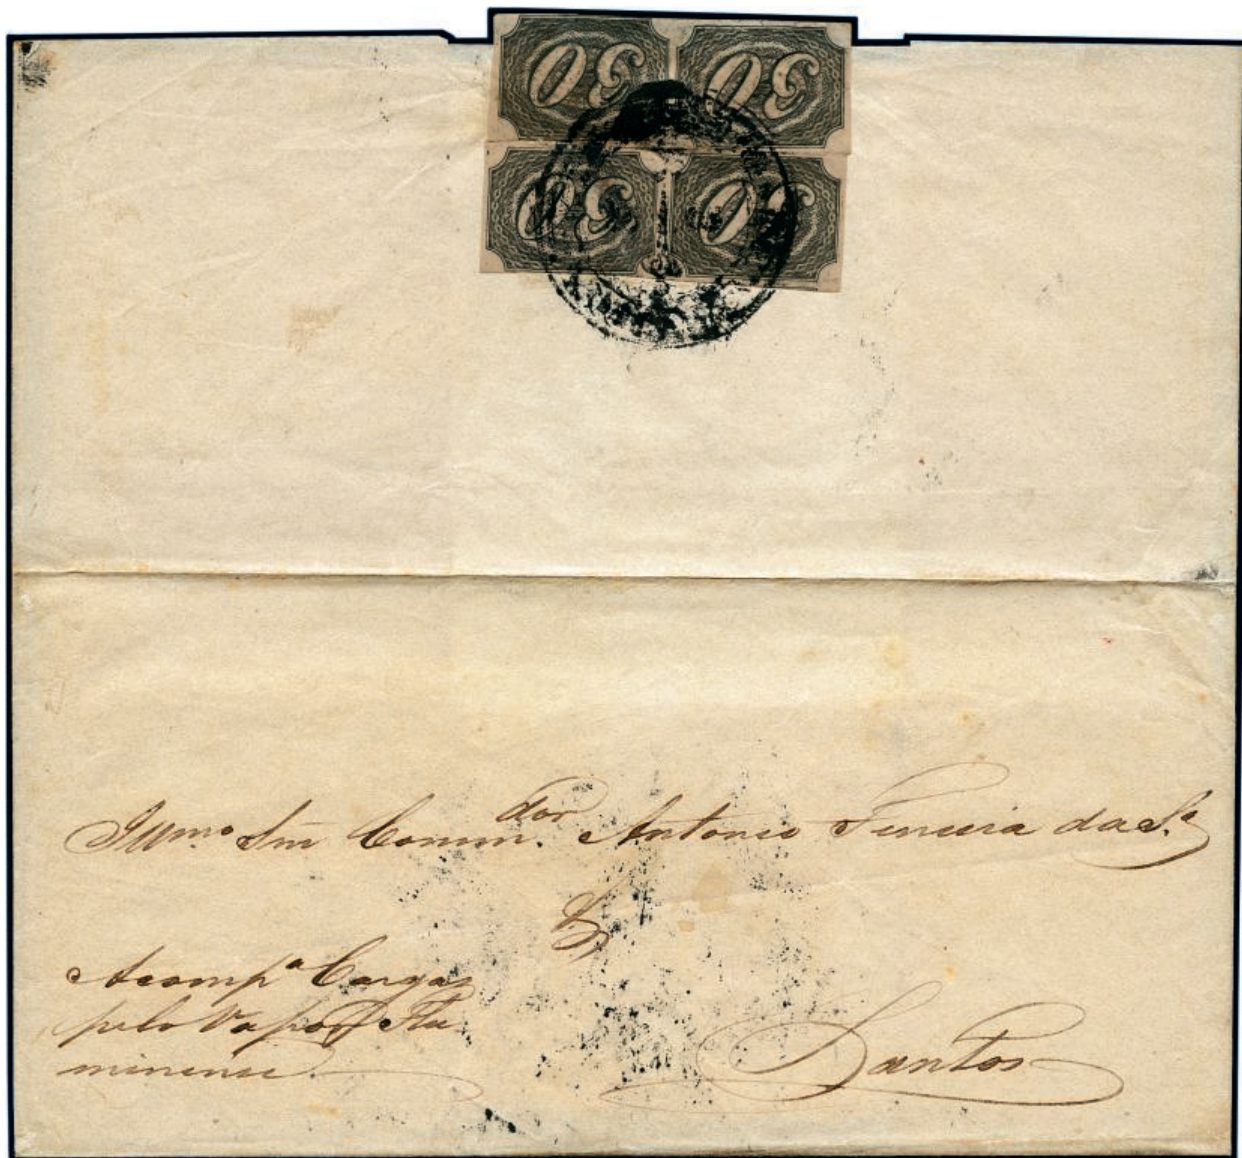 30 30
30 30
Illmo. Snr Commdor. Antonio Ferreira da Sa.
Acompa Carga
pelo Vapor Flu-
minense
Santos